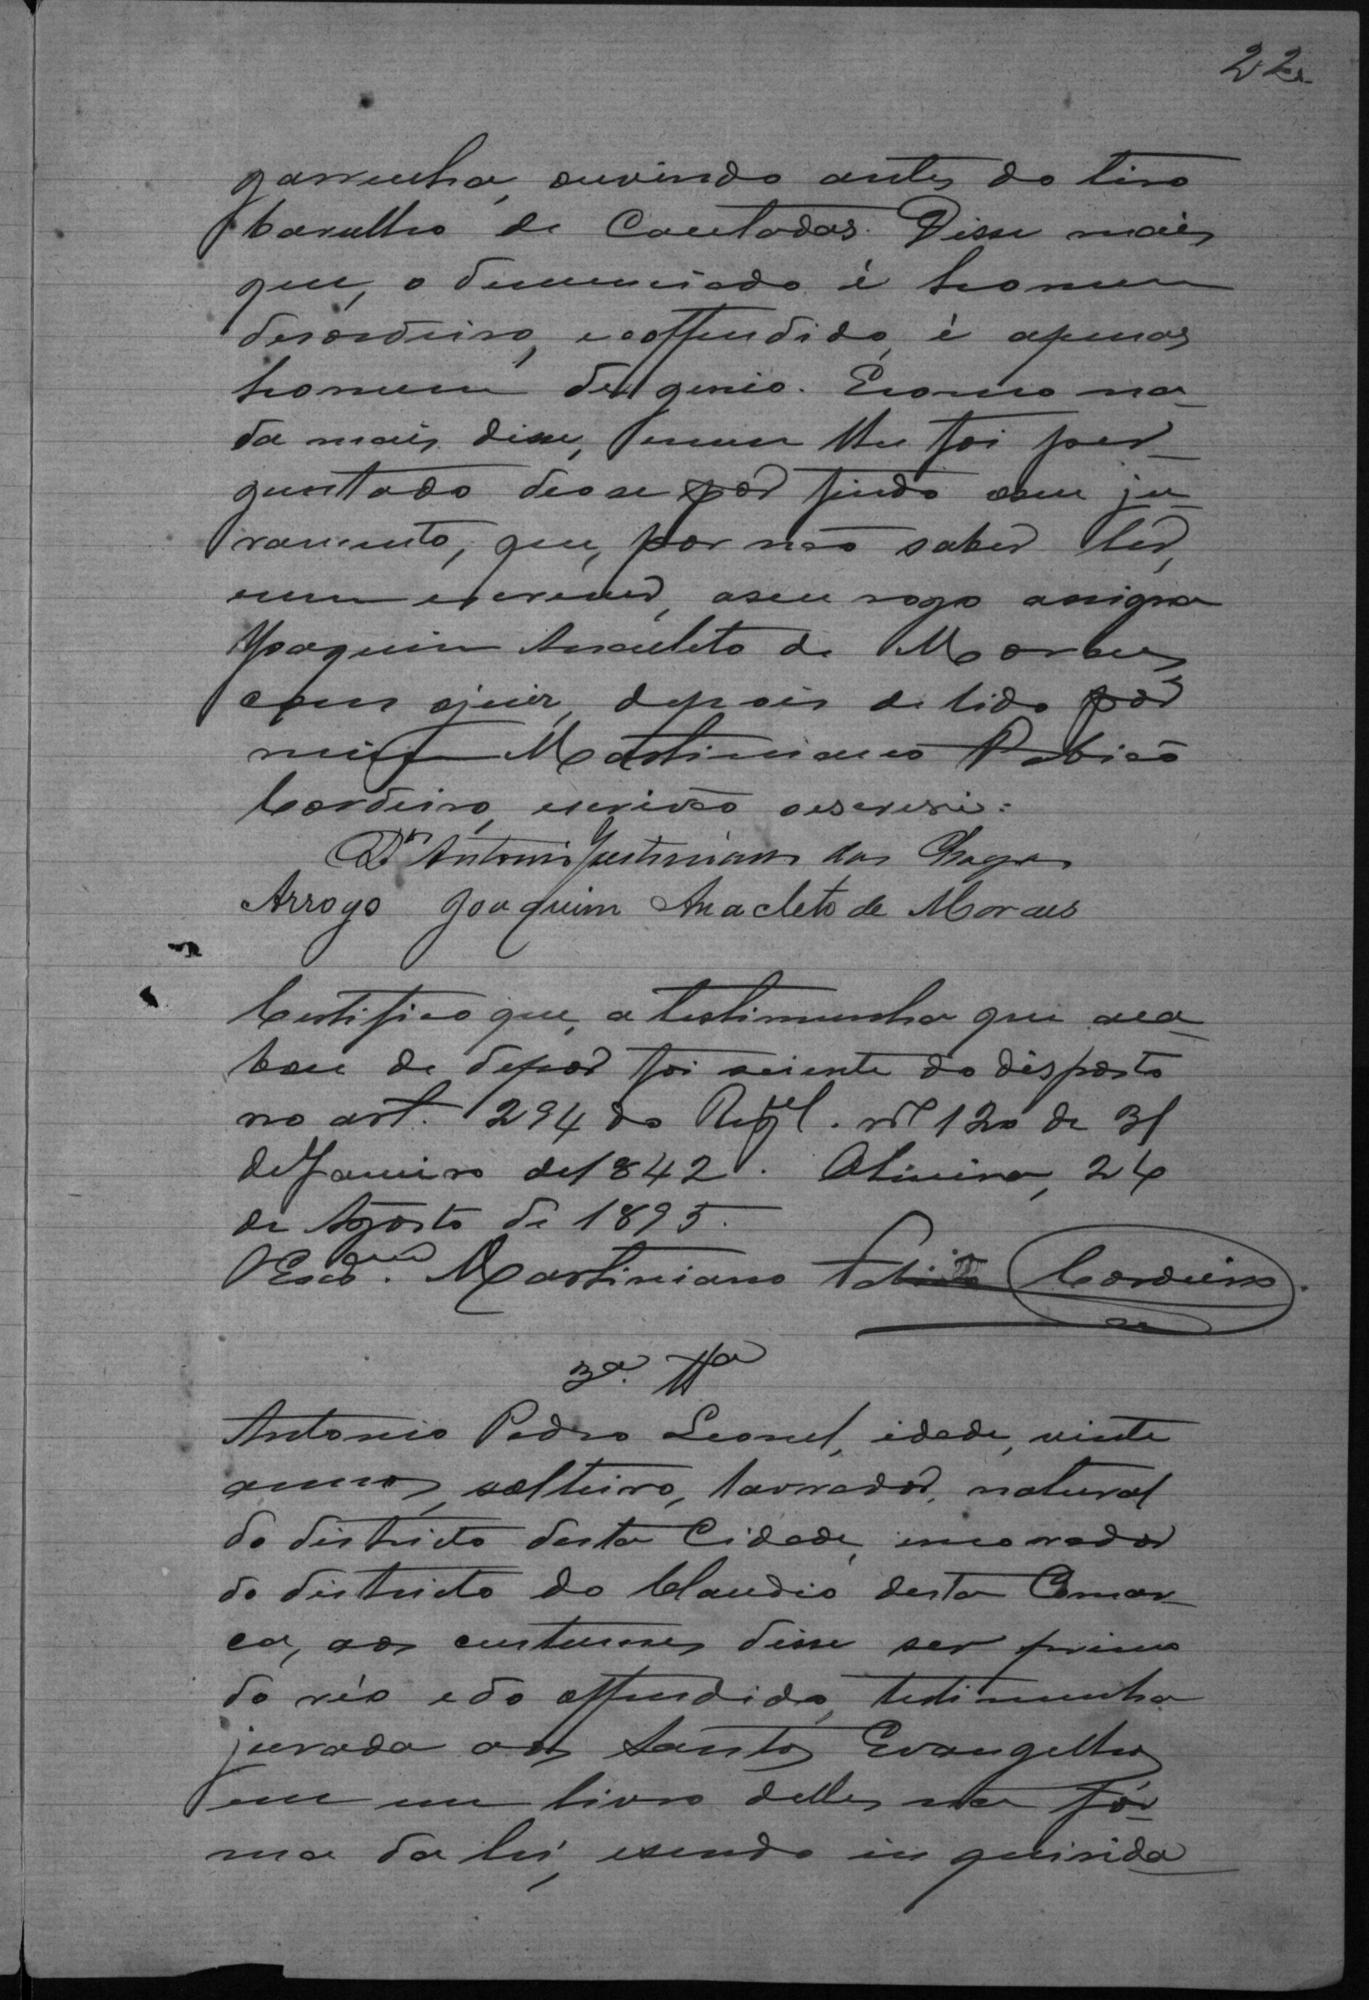 22
garrucha, ouvindo antes do tiro
barulho de Coutadas. Disse mais
que, o denunciado é homem
desordeiro, e o offendido, é apenas
homem de genio. E como na-
da mais disse, nem lhe foi per-
guntado deo se por findo o seu ju-
ramento, que, por não saber ler,
nem escrever, a seu rogo assigna
Joaquim Anacleto de Moraes
com o juiz, depois de lido por
mim Martiniano Fabião
Cordeiro, escrivão o escrevi:
Dr. Antonio Justiniano das Chagas
Arroyo Joaquim Anacleto de Moraes
Certifico que, a testimunha que aca-
bou de depor foi sciente do disposto
no art. 294 do Regul. nº 120 de 31
de Janeiro de 1842. Oliveira, 26
de Agosto de 1895.
O Escram. Martiniano Fabião Cordeiro.
3ª. Tta
Antonio Pedro Leonel, idade, vinte
annos, solteiro, lavrador, natural
do districto desta Cidade, e morador
do districto do Claudio desta Comar-
ca, aos custumes disse ser primo
do réo e do offendido, testimunha
jurada aos Santos Evangelhos
em um livro delles na fór-
ma da lei, e sendo inquirida